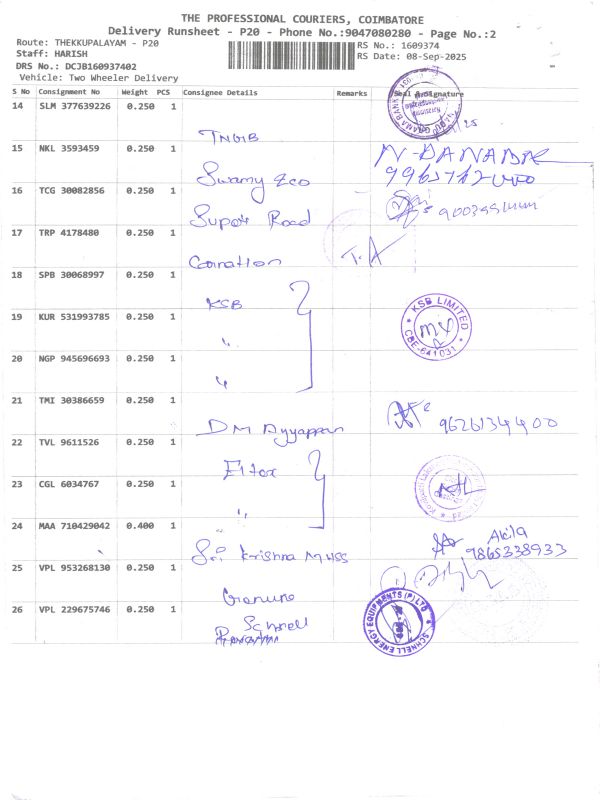 THE PROFESSIONAL COURIERS, COIMBATORE
Delivery Runsheet - P20 - Phone No.:9047080280 - Page No.:2
Route: THEKKUPALAYAM - P20
RS No.: 1609374
Staff: HARISH
RS Date: 08-Sep-2025
DRS No.: DCJB160937402
Vehicle: Two Wheeler Delivery
S No Consignment No Weight PCS Consignee Details Remarks Seal & Signature
14 SLM 377639226 0.250 1
TNGIB
15 NKL 3593459 0.250 1
Swamy Eco
16 TCG 30082856 0.250 1
Super Road
17 TRP 4178480 0.250 1
Coronation T.A
18 SPB 30068997 0.250 1
KSB
19 KUR 531993785 0.250 1
"
KSB LIMITED
CBE-641031
20 NGP 945696693 0.250 1
"
21 TMI 30386659 0.250 1
DM Ayyappan 9626134400
22 TVL 9611526 0.250 1
Eltex
23 CGL 6034767 0.250 1
"
24 MAA 710429042 0.400 1
Sri Krishna Muss
Akila
9865338933
25 VPL 953268130 0.250 1
26 VPL 229675746 0.250 1
Schnell
SCHNELL ENERGY EQUIPMENTS (P) LTD